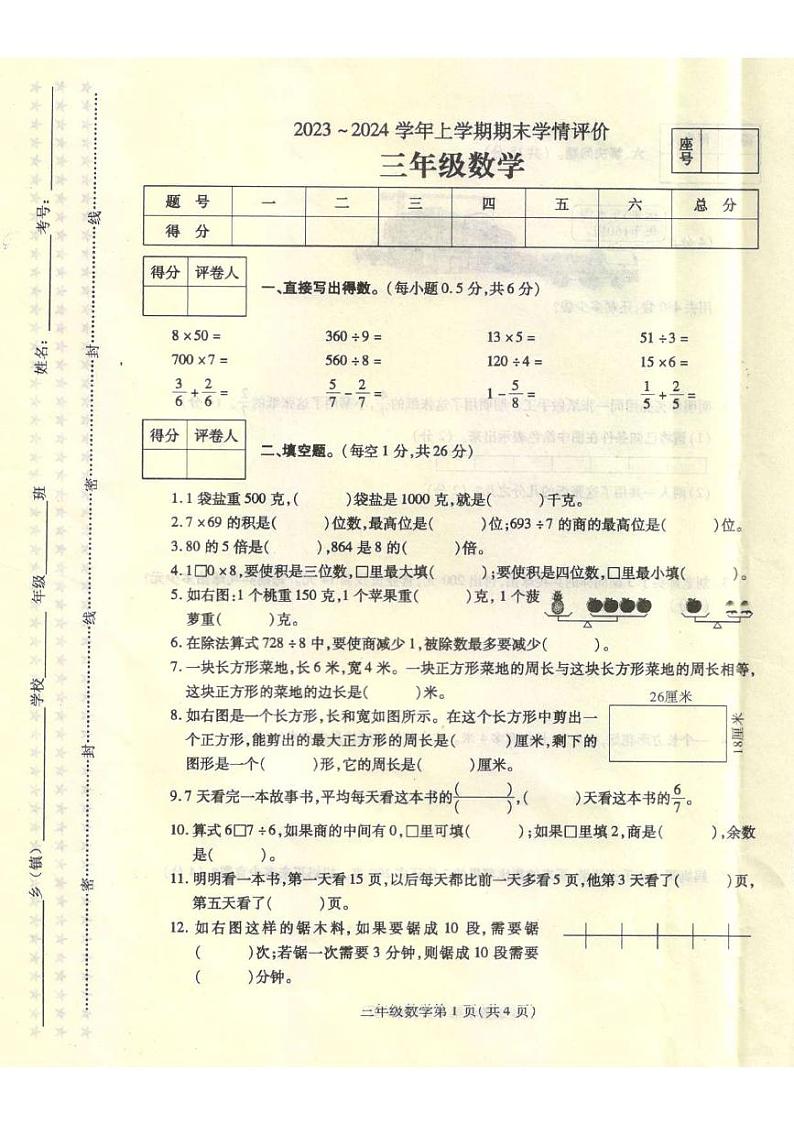 2023～2024 学年上学期期末学情评价
三年级数学
座号
题 号 一 二 三 四 五 六 总 分
得 分
得分 评卷人
一、直接写出得数。（每小题 0.5 分,共 6 分）
8×50= 360÷9= 13×5= 51÷3=
700×7= 560÷8= 120÷4= 15×6=
3/6+2/6= 5/7-2/7= 1-5/8= 1/5+2/5=
得分 评卷人
二、填空题。（每空 1 分,共 26 分）
1. 1 袋盐重 500 克,( )袋盐是 1000 克,就是( )千克。
2. 7×69 的积是( )位数,最高位是( )位;693÷7 的商的最高位是( )位。
3. 80 的 5 倍是( ),864 是 8 的( )倍。
4. 1□0×8,要使积是三位数,□里最大填( );要使积是四位数,□里最小填( )。
5. 如右图:1 个桃重 150 克,1 个苹果重( )克,1 个菠
萝重( )克。
6. 在除法算式 728÷8 中,要使商减少 1,被除数最多要减少( )。
7. 一块长方形菜地,长 6 米,宽 4 米。一块正方形菜地的周长与这块长方形菜地的周长相等,
这块正方形的菜地的边长是( )米。
26厘米
18厘米
8. 如右图是一个长方形,长和宽如图所示。在这个长方形中剪出一
个正方形,能剪出的最大正方形的周长是( )厘米,剩下的
图形是一个( )形,它的周长是( )厘米。
9. 7 天看完一本故事书,平均每天看这本书的( )/( ),( )天看这本书的6/7。
10. 算式 6□7÷6,如果商的中间有 0,□里可填( );如果□里填 2,商是( ),余数
是( )。
11. 明明看一本书,第一天看 15 页,以后每天都比前一天多看 5 页,他第 3 天看了( )页,
第五天看了( )页。
12. 如右图这样的锯木料,如果要锯成 10 段,需要锯
( )次;若锯一次需要 3 分钟,则锯成 10 段需要
( )分钟。
三年级数学第 1 页(共 4 页)
乡（镇） 学校 年级 班 姓名： 考号：
密 封 线 密 封 线